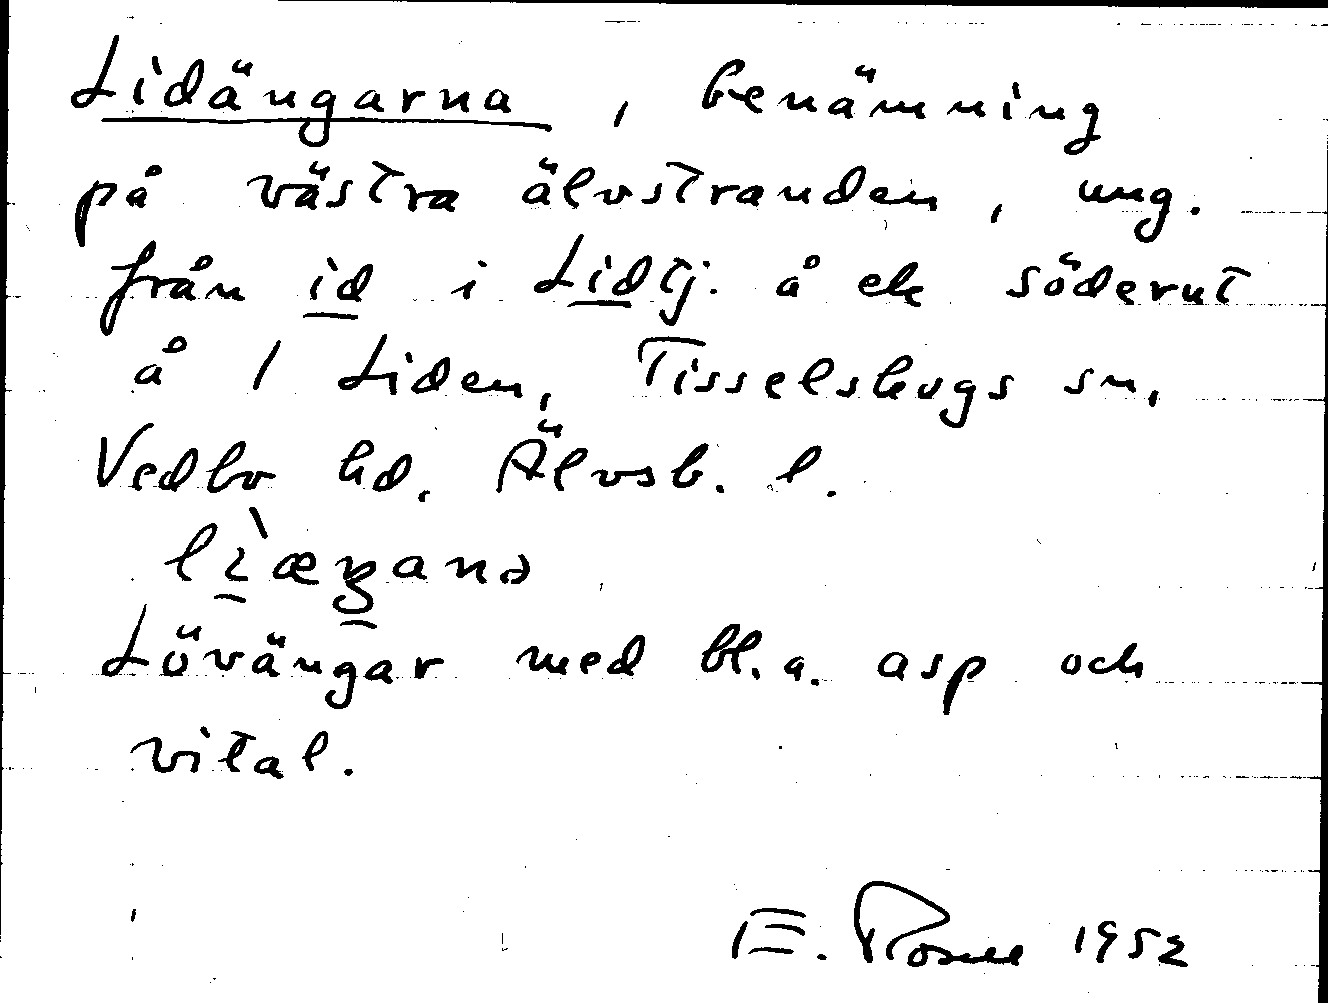 Lidängarna, benämning
på västra älvstranden, ung.
från id i Lidtj. å ek söderut
å 1 Liden, Tisselskogs sn,
Vedbo hd. Älvsb. l.
Lövängar med bl.a. asp och
vital.
E. 1952